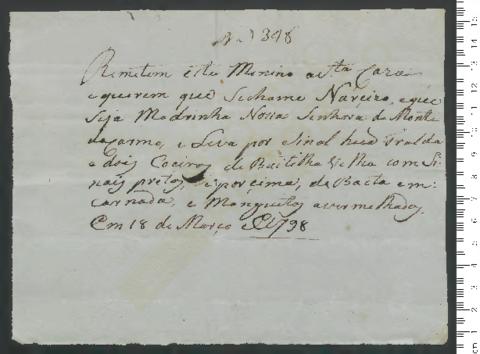 N.º 348
Remetem este Menino a esta Caza
e querem que Sechame Narcizo, eque
Seja Madrinha Nosa Senhora do Monte
do Carmo, e Leva por Sinal huã Fralda
e dois Coeiros de Baetilha Velha com Si
nais pretos, e por cima, de Baeta en=
carnada, e Manguitos avermelhados,
Em 18 de Março de 1798